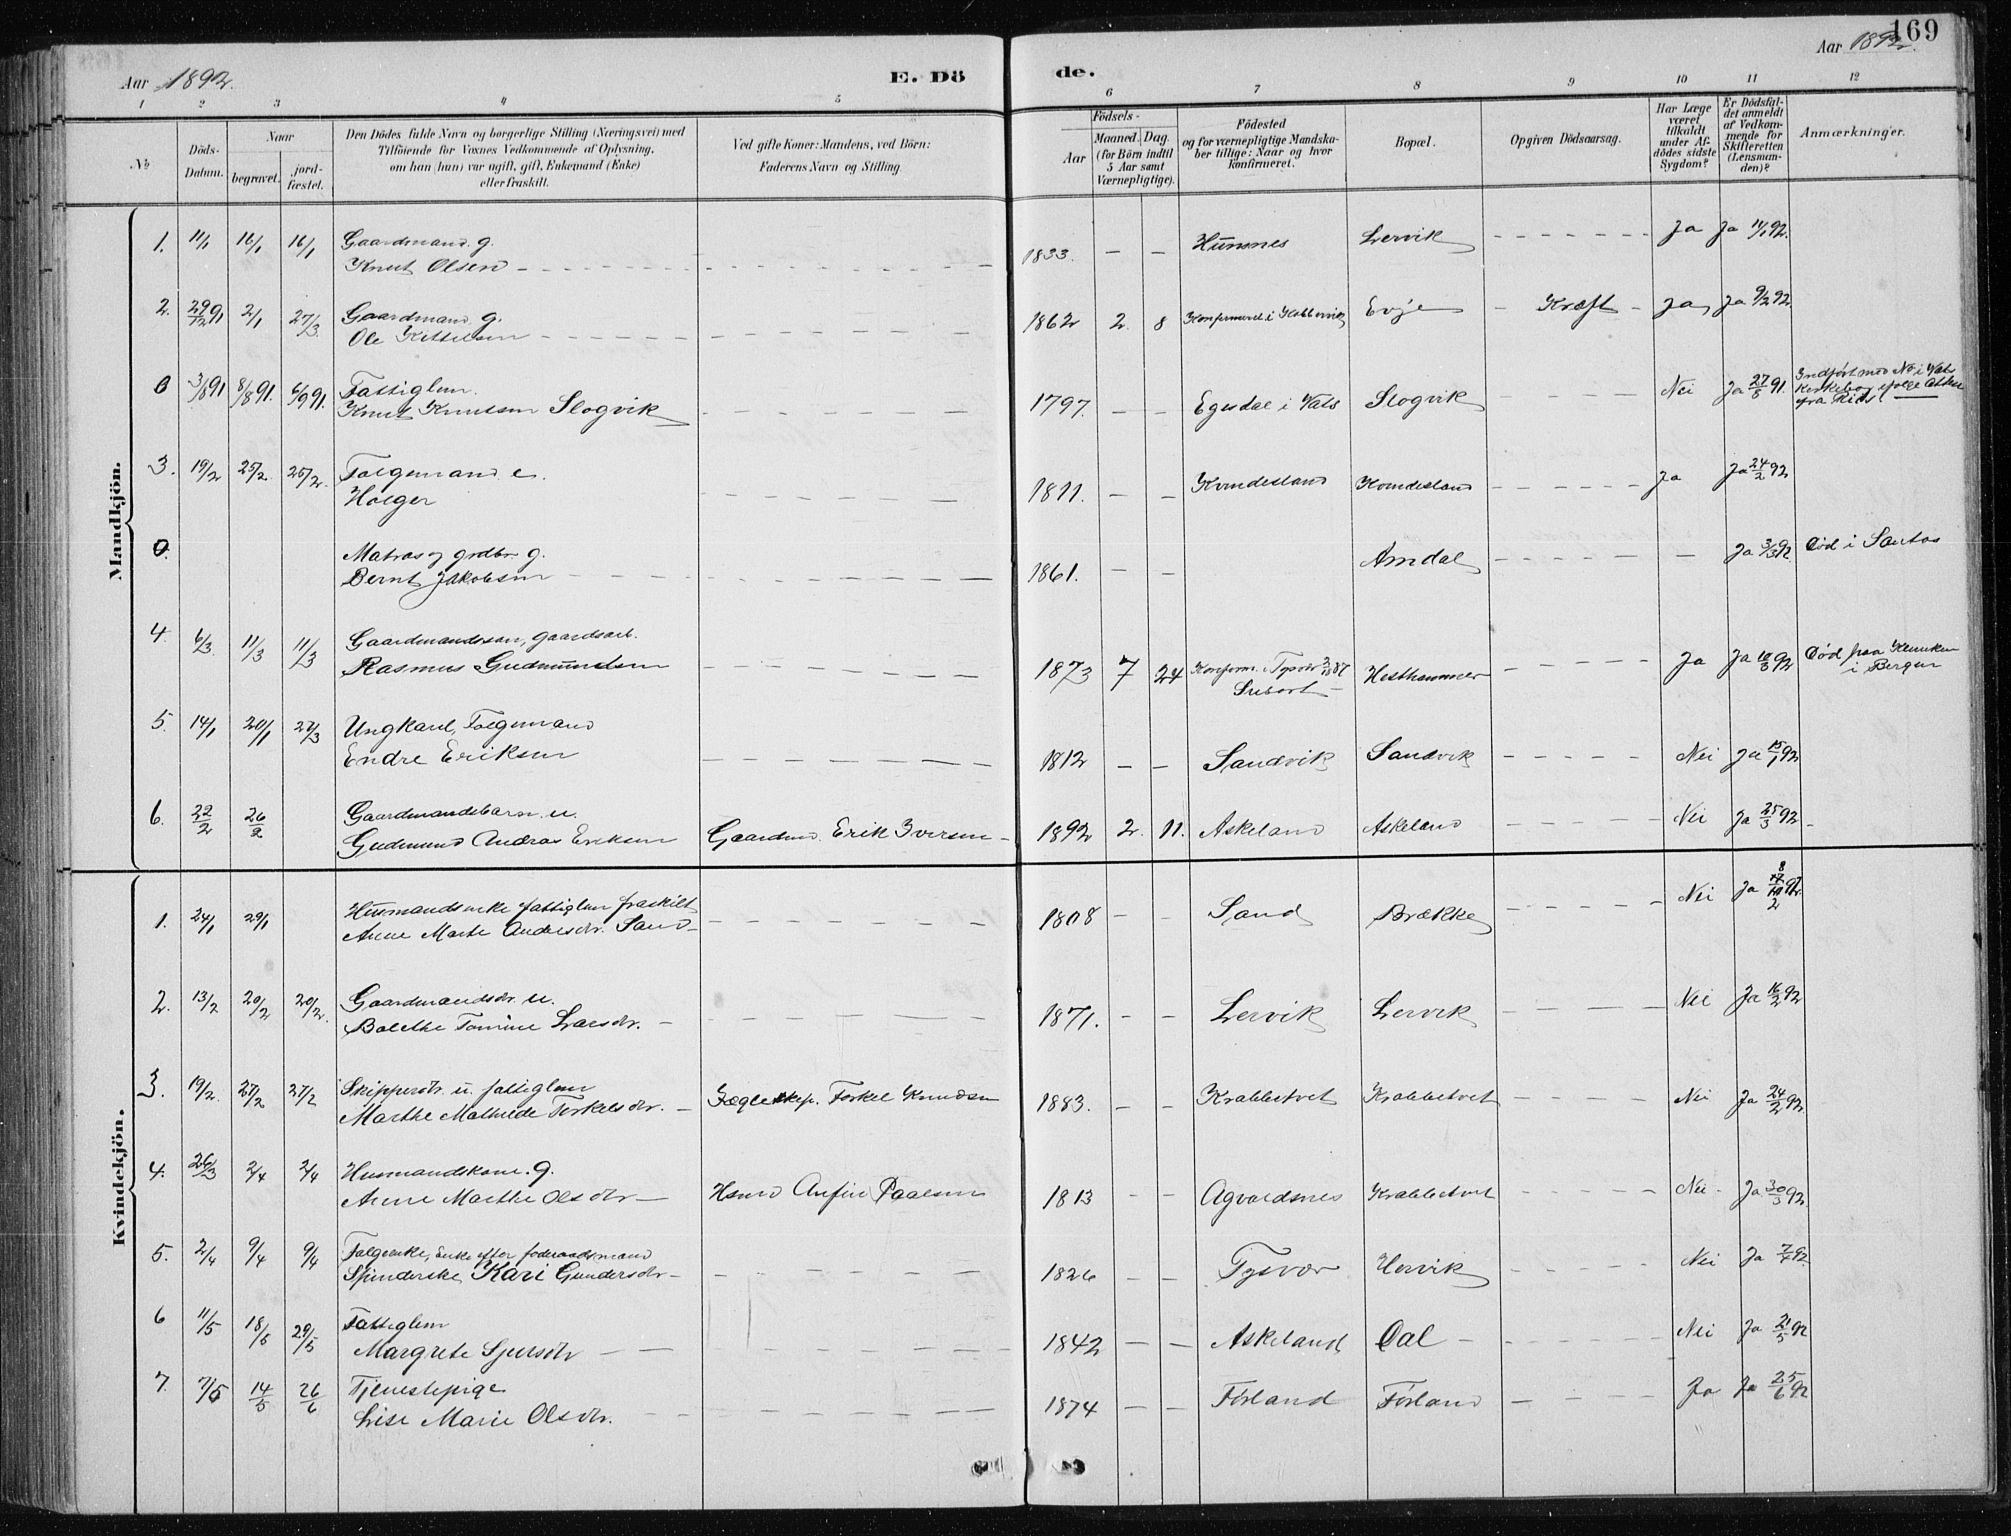 169
Aar 1892.
E. Dö
de.
Aar 1892.
1 2 3 4 5 6 7 8 9 10 11 12
No
Döds-Datum.
Naar
begravet.
jordfæstet.
Den Dödes fulde Navn og borgerlige Stilling (Næringsvei) med
Tilföiende for Voxnes Vedkommende af Oplysning,
om han (hun) var ugift, gift, Enkemand (Enke)
eller fraskilt.
Ved gifte Koner: Mandens, ved Börn:
Faderens Navn og Stilling.
Födsels-
Aar
Maaned. Dag.
(for Börn indtil
5 Aar samt
Værnepligtige).
Födested
og for værnepligtige Mandskaber tillige: Naar og hvor
konfirmeret.
Bopæl.
Opgiven Dödsaarsag.
Har Læge
været
tilkaldt
under Afdödes sidste
Sygdom?
Er Dödsfaldet anmeldt
af Vedkommende for
Skifteretten
(Lensmanden)?
Anmærkninger.
Mandkjön.
1. 11/1 16/1 16/1 Gaardmand g.
Knut Olsen 1833. — — Hunsnes Lervik Ja Ja 11/1 92.
2. 29/12 91 2/1 27/3 Gaardmand g.
Ole Kittelsen 1862 2. 8 Konfirmeret i Evje Kræft Ja Ja 9/2 92
0 3/8 91 8/8 91. 6/9 91. Fattiglem.
Knut Knutsen Slogvik 1797. — — Egesdal i Vats Slogvik Nei Ja 27/8 91. Indført med No i Vats
Kirkebog ifølge Attest
fra
3. 19/2 25/2 25/2 Folgemand e.
Holger 1811. — — Kvindesland Kvindesland Ja Ja 24/2 92
0. Matros og grdbr. g.
Bernt Jakobsen 1861. — — Amdal — Ja 3/3 92 Død i Santos
4. 6/3 11/3 11/3 Gaardmandssøn, gaardsarb.
Rasmus Gudmundsen 1873 7 24 Konfirm. i Tysvær 87 Hesthammer Ja Ja 10/3 92 Død paa Klinikken
i Bergen
5. 14/1 20/1 27/3 Ungkarl, Folgemand
Endre Eriksen 1812 — — Sandvik Sandvik Nei Ja 15/1 92
6. 22/2 26/2 Gaardmandsbarn. u.
Gudmund Andras Eriksen Gaardmd. Erik Iversen 1892 2. 11. Askeland Askeland Nei Ja 25/3 92
Kvindekjön.
1. 24/1 29/1 Husmandsenke fattiglem fraskilt
Anne Marte Andersdr. Sand 1808 — — Sand Brække Nei Ja
2. 13/2 20/2 20/2. Gaardmandsdr. u.
Bolethe Tomine Larsdr. 1871. — — Lervik Lervik Nei Ja 16/2 92
3. 19/2. 27/2 27/2 Skippersdr. u. fattiglem
Marthe Mathilde Torkelsdr. Jægteskip. Torkel Knudsen 1883. — — Krabbetveit Krabbetveit Nei Ja 24/2 92.
4. 26/3 2/4 2/4 Husmandskone. g.
Anne Marthe Olsdr Hsmd Anfin Paalsen 1813 — — Agvaldsnes Krabbetvet Nei Ja 30/3 92.
5. 2/4 9/4 9/4 Folgeenke, Enke efter føderaadsmand
Spinderske, Kari Gundersdr 1826 — — Tysvær Hervik Nei Ja 7/4 92
6 11/5 18/5 29/5 Fattiglem
Margrete Sjursdr 1842 — — Askeland Dal Nei Ja 21/5 92
7. 7/5 14/5 26/6 Tjenestepige
Lise Marie Olsdr. 1874 — — Førland Førland Ja Ja 25/6 92